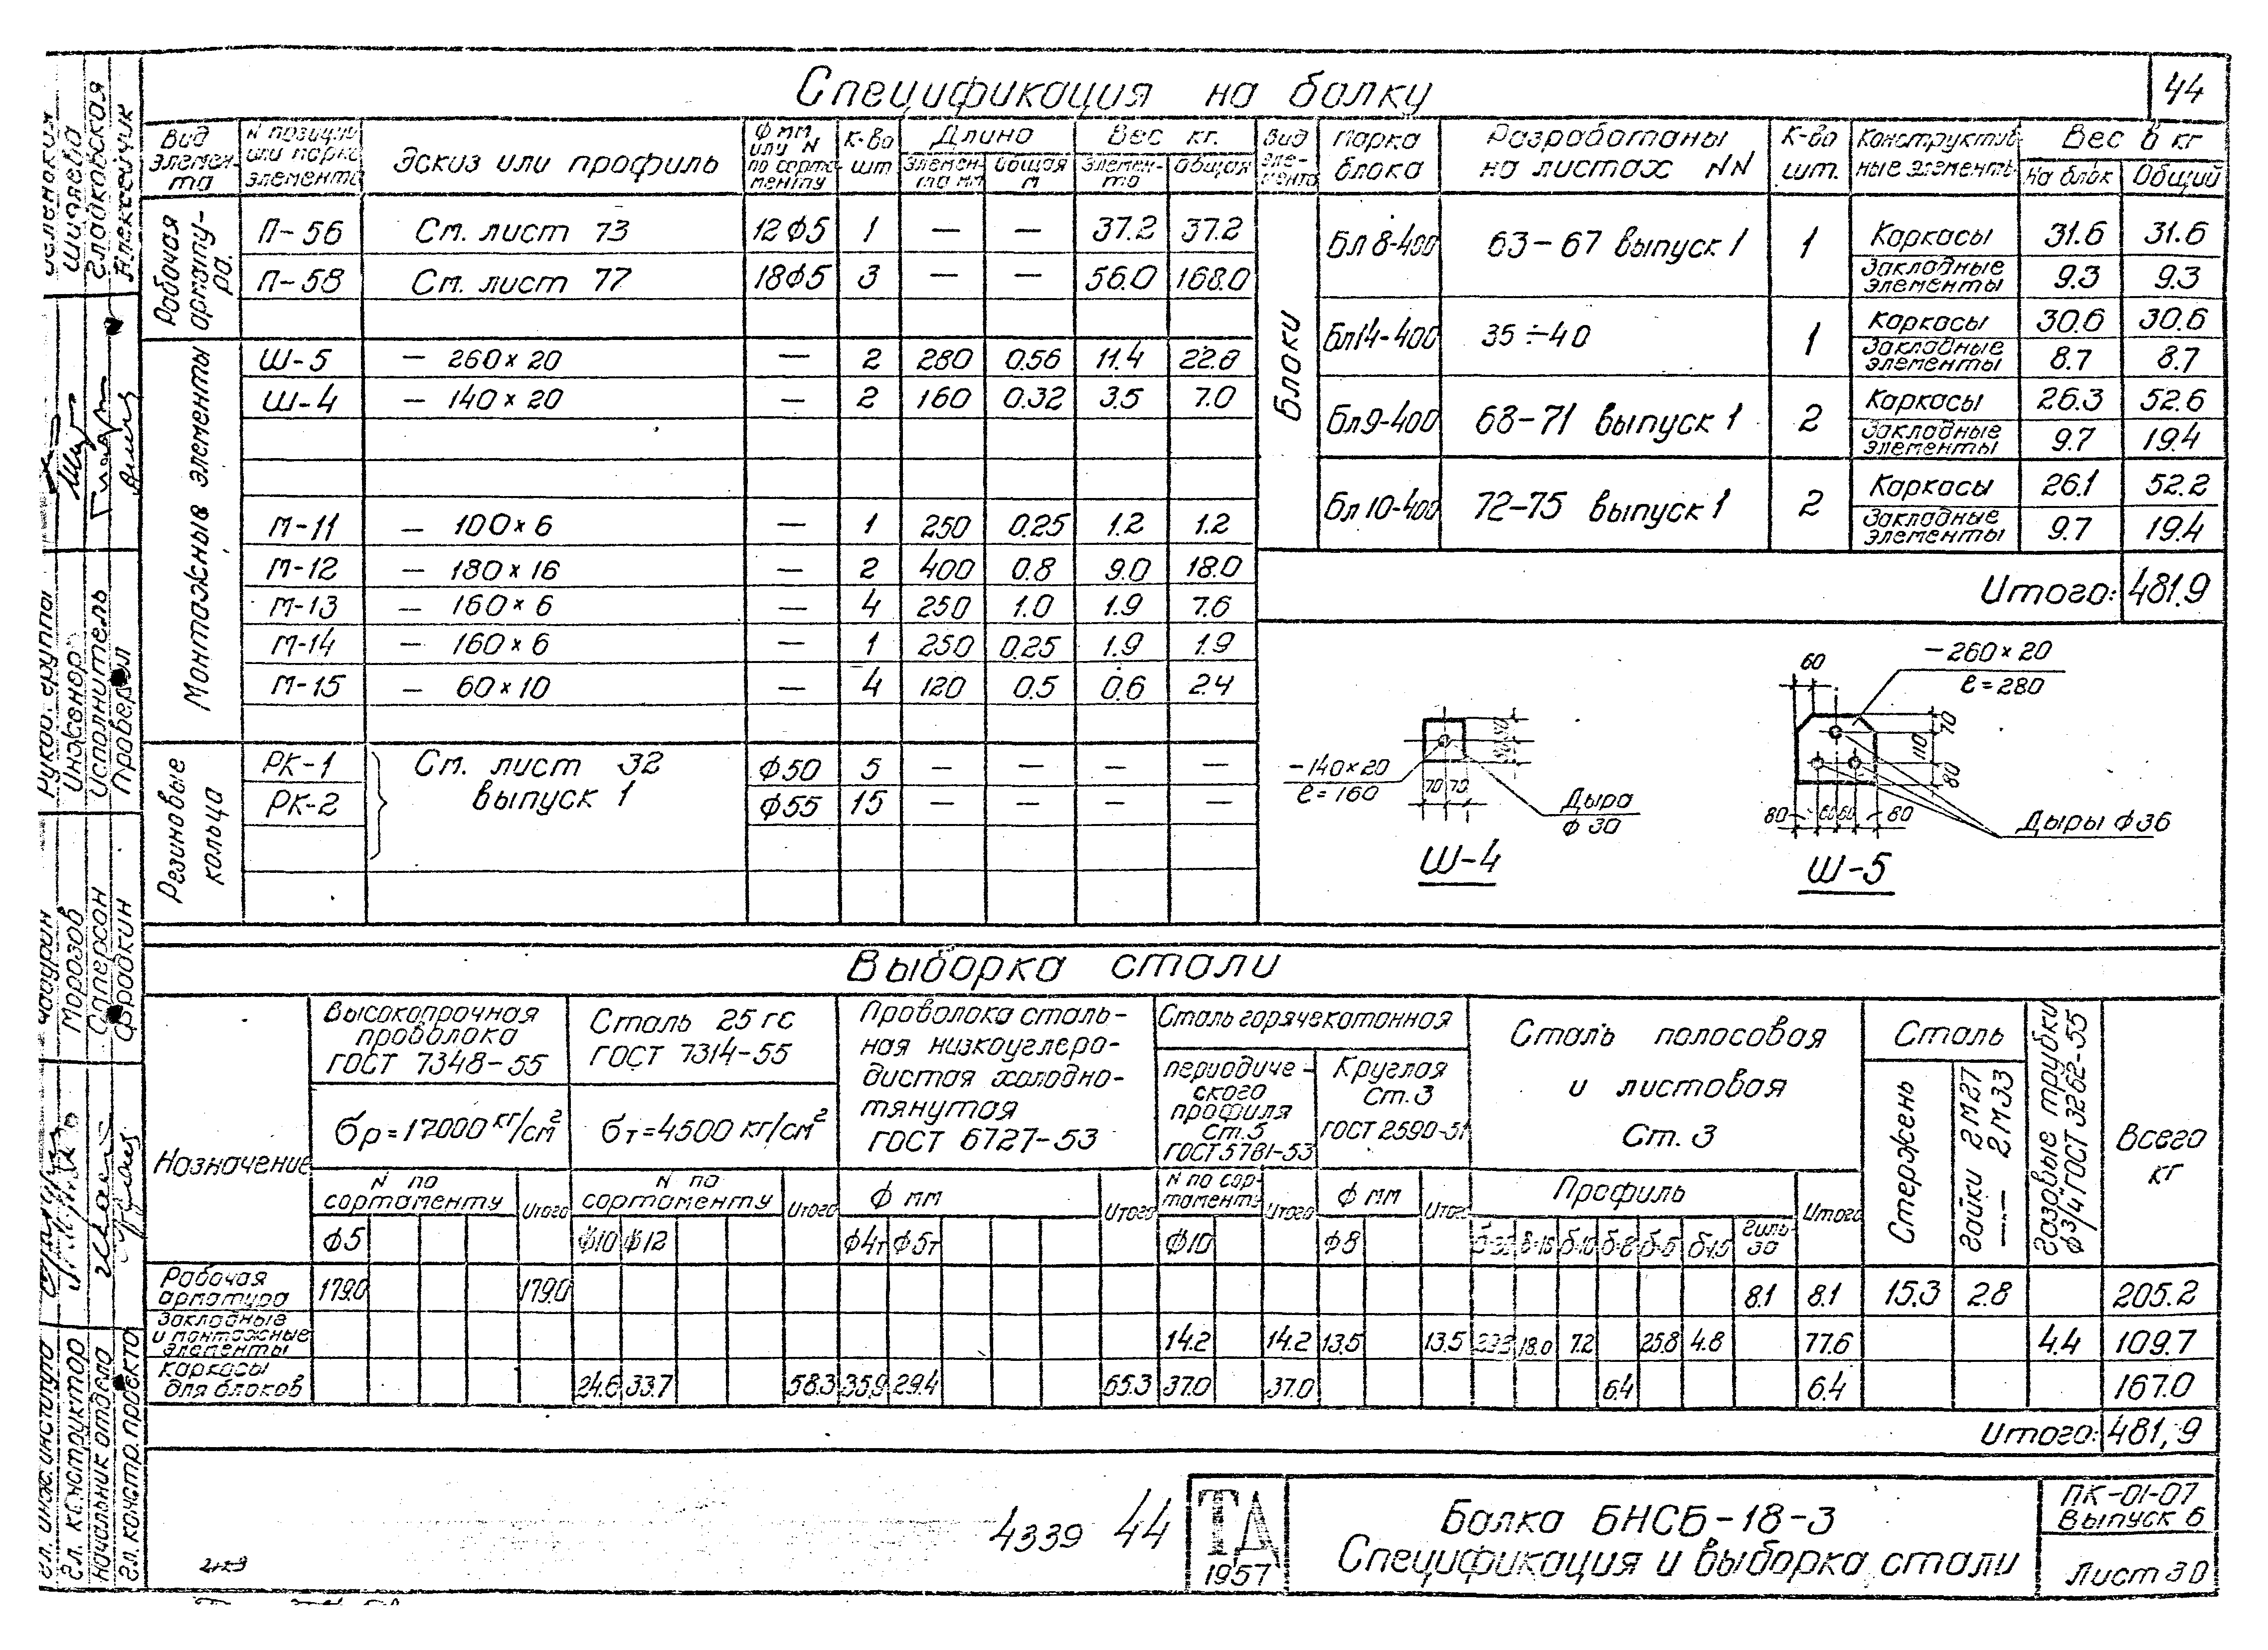 44
Спецификация на балку
Вид элемента | N позиции или марка элемента | Эскиз или профиль | ф мм или N по сортаменту | К-во шт | Длина элемента мм | Длина общая м | Вес кг. элемента | Вес кг. общая
Рабочая арматура.
П-56 | См. лист 73 | 12ф5 | 1 | — | — | 37.2 | 37.2
П-58 | См. лист 77 | 18ф5 | 3 | — | — | 56.0 | 168.0
Монтажные элементы
Ш-5 | — 260×20 | — | 2 | 280 | 0.56 | 11.4 | 22.8
Ш-4 | — 140×20 | — | 2 | 160 | 0.32 | 3.5 | 7.0
М-11 | — 100×6 | — | 1 | 250 | 0.25 | 1.2 | 1.2
М-12 | — 180×16 | — | 2 | 400 | 0.8 | 9.0 | 18.0
М-13 | — 160×6 | — | 4 | 250 | 1.0 | 1.9 | 7.6
М-14 | — 160×6 | — | 1 | 250 | 0.25 | 1.9 | 1.9
М-15 | — 60×10 | — | 4 | 120 | 0.5 | 0.6 | 2.4
Резиновые кольца
РК-1 | См. лист 32 выпуск 1 | ф50 | 5 | — | — | — | —
РК-2 | ф55 | 15 | — | — | — | —
Вид элемента | Марка блока | Разработаны на листах NN | К-во шт. | Конструктивные элементы | Вес в кг На блок | Общий
Блоки
Бл 8-400 | 63-67 выпуск 1 | 1 | Каркасы | 31.6 | 31.6
Закладные элементы | 9.3 | 9.3
Бл14-400 | 35÷40 | 1 | Каркасы | 30.6 | 30.6
Закладные элементы | 8.7 | 8.7
Бл9-400 | 68-71 выпуск 1 | 2 | Каркасы | 26.3 | 52.6
Закладные элементы | 9.7 | 19.4
Бл 10-400 | 72-75 выпуск 1 | 2 | Каркасы | 26.1 | 52.2
Закладные элементы | 9.7 | 19.4
Итого: 481.9
-140×20
ℓ=160
70 70
Дыра
ф 30
Ш-4
60
-260×20
ℓ=280
70
110
80
80 60 60 80
Дыры ф36
Ш-5
Выборка стали
Назначение
Высокопрочная проволока ГОСТ 7348-55
σр=17000 кг/см²
N по сортаменту | Итого
ф5
Сталь 25гс ГОСТ 7314-55
σт=4500 кг/см²
N по сортаменту | Итого
ф10 ф12
Проволока стальная низкоуглеродистая холоднотянутая ГОСТ 6727-53
ф мм | Итого
ф4т ф5т
Сталь горячекатанная
периодического профиля Ст.5 ГОСТ 5781-53
N по сортаменту | Итого
ф10
Круглая Ст.3 ГОСТ 2590-51
ф мм | Итого
ф8
Сталь полосовая и листовая Ст. 3
Профиль | Итого
δ-10 δ-8 δ-6
Сталь
Стержень
Гайки 2М27
—„— 2М33
Газовые трубки ф3/4" ГОСТ 3262-55
Всего кг
Рабочая арматура | 179.0 | 179.0 | 8.1 | 8.1 | 15.3 | 2.8 | 205.2
Закладные и монтажные элементы | 14.2 | 14.2 | 13.5 | 13.5 | 18.0 | 7.2 | 25.8 | 4.8 | 77.6 | 4.4 | 109.7
Каркасы для блоков | 24.6 | 33.7 | 58.3 | 35.9 | 29.4 | 65.3 | 37.0 | 37.0 | 6.4 | 6.4 | 167.0
Итого: 481,9
4339 44
ТД
1957
Балка БНСБ-18-3
Спецификация и выборка стали
ПК-01-07
Выпуск 6
Лист 30
Гл. инж. института
Гл. конструктор
Начальник отдела
Гл. констр. проекта
Морозов
Саперсон
Фрадкин
Руков. группы
Инженер
Исполнитель
Проверил
Шиляева
Гладковская
Алексейчик